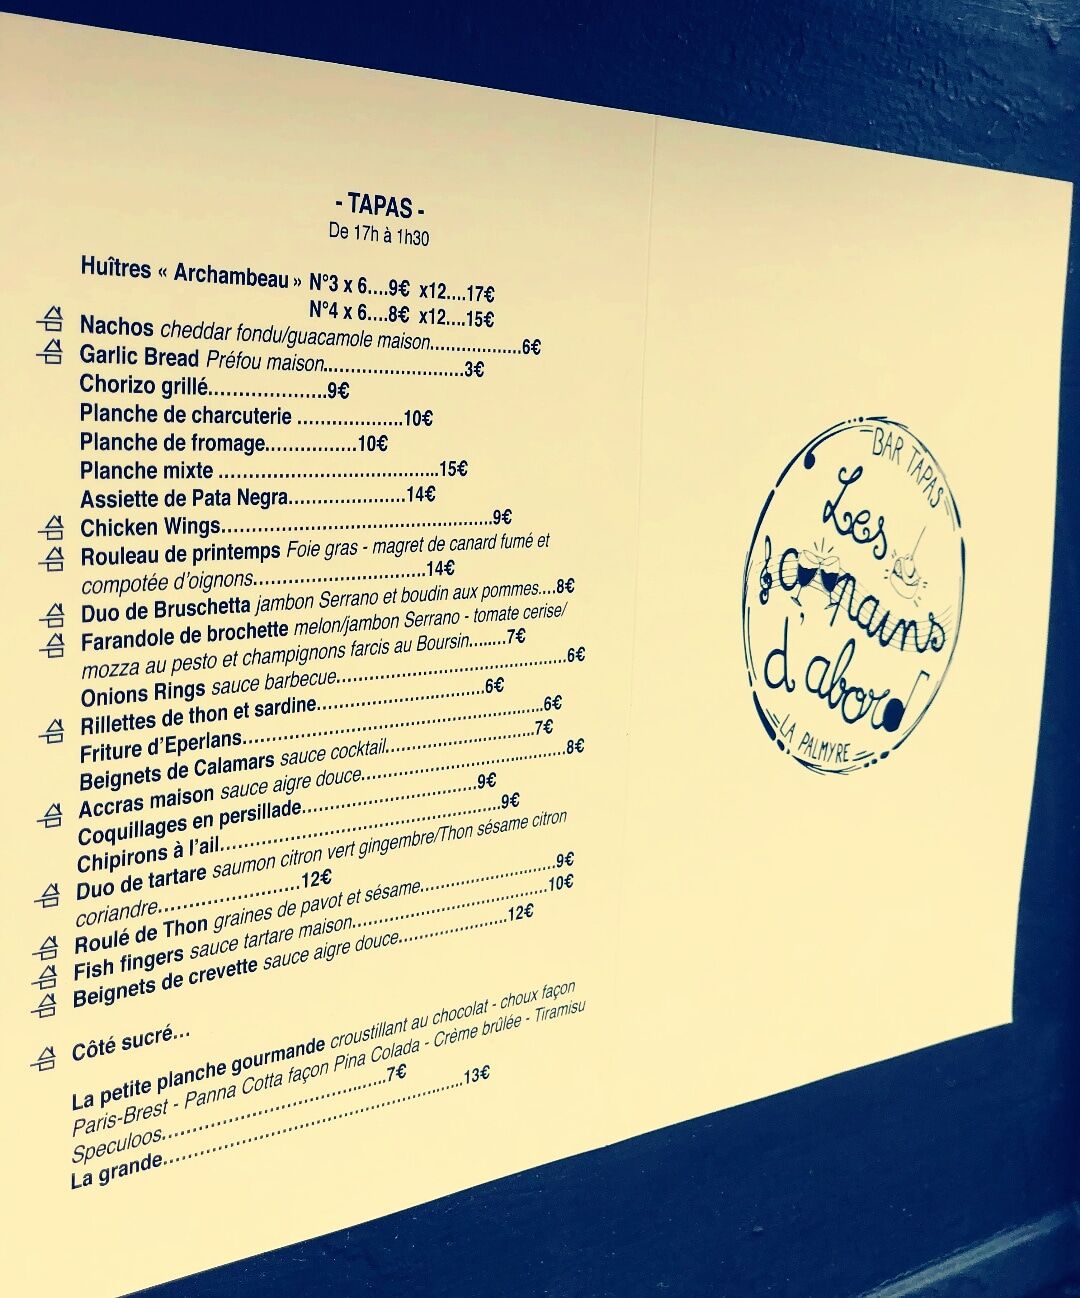 - TAPAS -
De 17h à 1h30
Huîtres « Archambeau » N°3 x 6....9€ x12....17€
N°4 x 6....8€ x12....15€
Nachos cheddar fondu/guacamole maison..................6€
Garlic Bread Préfou maison...........................3€
Chorizo grillé.....................9€
Planche de charcuterie .....................10€
Planche de fromage................10€
Planche mixte ........................................15€
Assiette de Pata Negra.....................14€
Chicken Wings................................................9€
Rouleau de printemps Foie gras - magret de canard fumé et
compotée d'oignons..............................14€
Duo de Bruschetta jambon Serrano et boudin aux pommes....8€
Farandole de brochette melon/jambon Serrano - tomate cerise/
mozza au pesto et champignons farcis au Boursin........7€
Onions Rings sauce barbecue..........................................6€
Rillettes de thon et sardine..............................6€
Friture d'Eperlans......................................................6€
Beignets de Calamars sauce cocktail...........................7€
Accras maison sauce aigre douce.....................................8€
Coquillages en persillade...............................9€
Chipirons à l'ail..................................................9€
Duo de tartare saumon citron vert gingembre/Thon sésame citron
coriandre.........................12€
Roulé de Thon graines de pavot et sésame.........................9€
Fish fingers sauce tartare maison...................................10€
Beignets de crevette sauce aigre douce....................12€
Côté sucré...
La petite planche gourmande croustillant au chocolat - choux façon
Paris-Brest - Panna Cotta façon Pina Colada - Crème brûlée - Tiramisu
Speculoos.......................................7€
La grande.....................................................13€
BAR TAPAS
Les
Copains
d'abord
LA PALMYRE